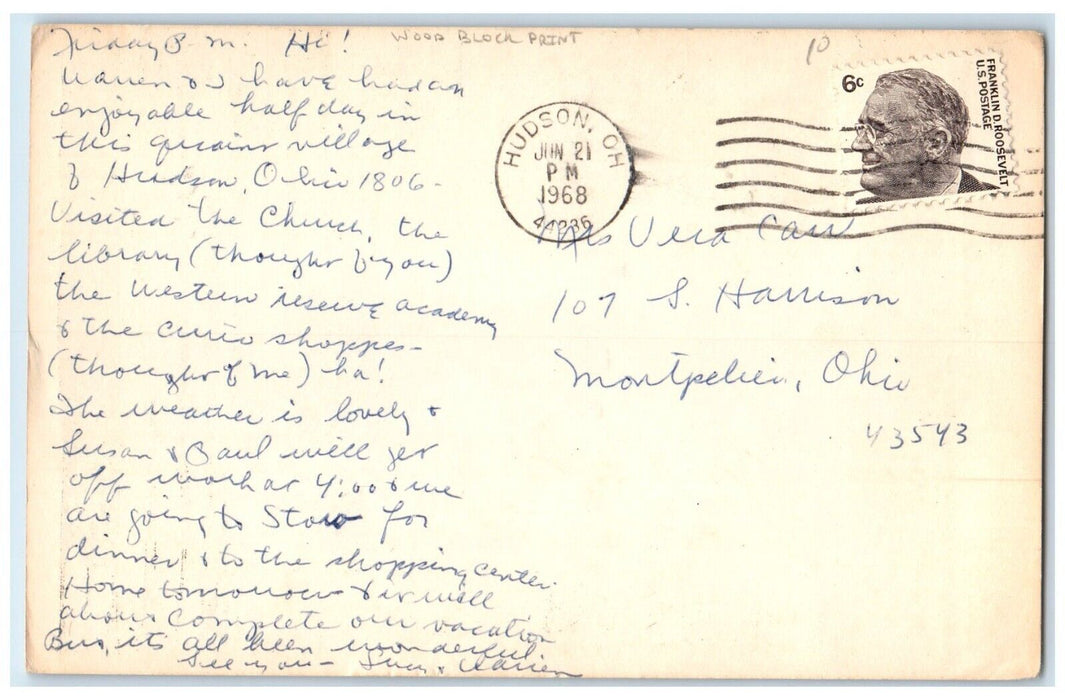 Friday P.M. Hi!
Warren & I have had an
enjoyable half day in
this quaint village
of Hudson, Ohio 1806-
Visited the Church, the
library (thought of you)
the Western reserve academy
& the curio shoppes-
(thought of me) ha!
The weather is lovely &
Susan & Paul will get
off work at 4:00 & we
are going to Stow for
dinner & to the shopping center
Home tomorrow & it will
about complete our vacation
But, it's all been wonderful
See you - & Warren
WOOD BLOCK PRINT
10
HUDSON, OH
JUN 21
PM
1968
44236
6c
FRANKLIN D. ROOSEVELT
U.S. POSTAGE
Mrs Vera Carr
107 S. Harrison
Montpelier, Ohio
43543